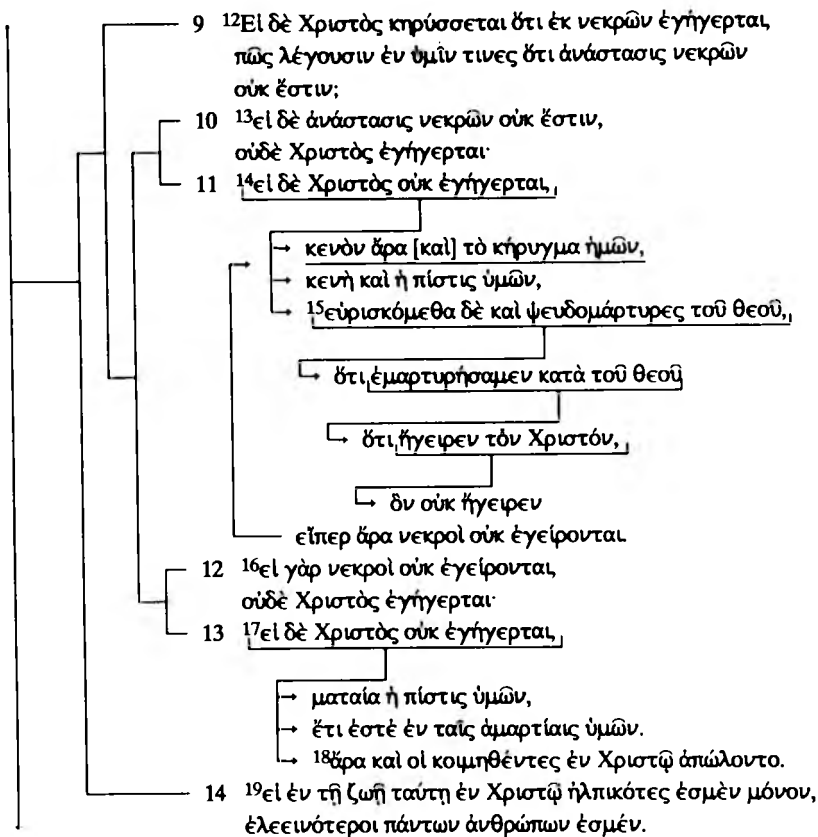 9 ¹²Εἰ δὲ Χριστὸς κηρύσσεται ὅτι ἐκ νεκρῶν ἐγήγερται,
πῶς λέγουσιν ἐν ὑμῖν τινες ὅτι ἀνάστασις νεκρῶν
οὐκ ἔστιν;
10 ¹³εἰ δὲ ἀνάστασις νεκρῶν οὐκ ἔστιν,
οὐδὲ Χριστὸς ἐγήγερται·
11 ¹⁴εἰ δὲ Χριστὸς οὐκ ἐγήγερται,
κενὸν ἄρα [καὶ] τὸ κήρυγμα ἡμῶν,
κενὴ καὶ ἡ πίστις ὑμῶν,
¹⁵εὑρισκόμεθα δὲ καὶ ψευδομάρτυρες τοῦ θεοῦ,
ὅτι ἐμαρτυρήσαμεν κατὰ τοῦ θεοῦ
ὅτι ἤγειρεν τὸν Χριστόν,
ὃν οὐκ ἤγειρεν
εἴπερ ἄρα νεκροὶ οὐκ ἐγείρονται.
12 ¹⁶εἰ γὰρ νεκροὶ οὐκ ἐγείρονται,
οὐδὲ Χριστὸς ἐγήγερται·
13 ¹⁷εἰ δὲ Χριστὸς οὐκ ἐγήγερται,
ματαία ἡ πίστις ὑμῶν,
ἔτι ἐστὲ ἐν ταῖς ἁμαρτίαις ὑμῶν.
¹⁸ἄρα καὶ οἱ κοιμηθέντες ἐν Χριστῷ ἀπώλοντο.
14 ¹⁹εἰ ἐν τῇ ζωῇ ταύτῃ ἐν Χριστῷ ἠλπικότες ἐσμὲν μόνον,
ἐλεεινότεροι πάντων ἀνθρώπων ἐσμέν.